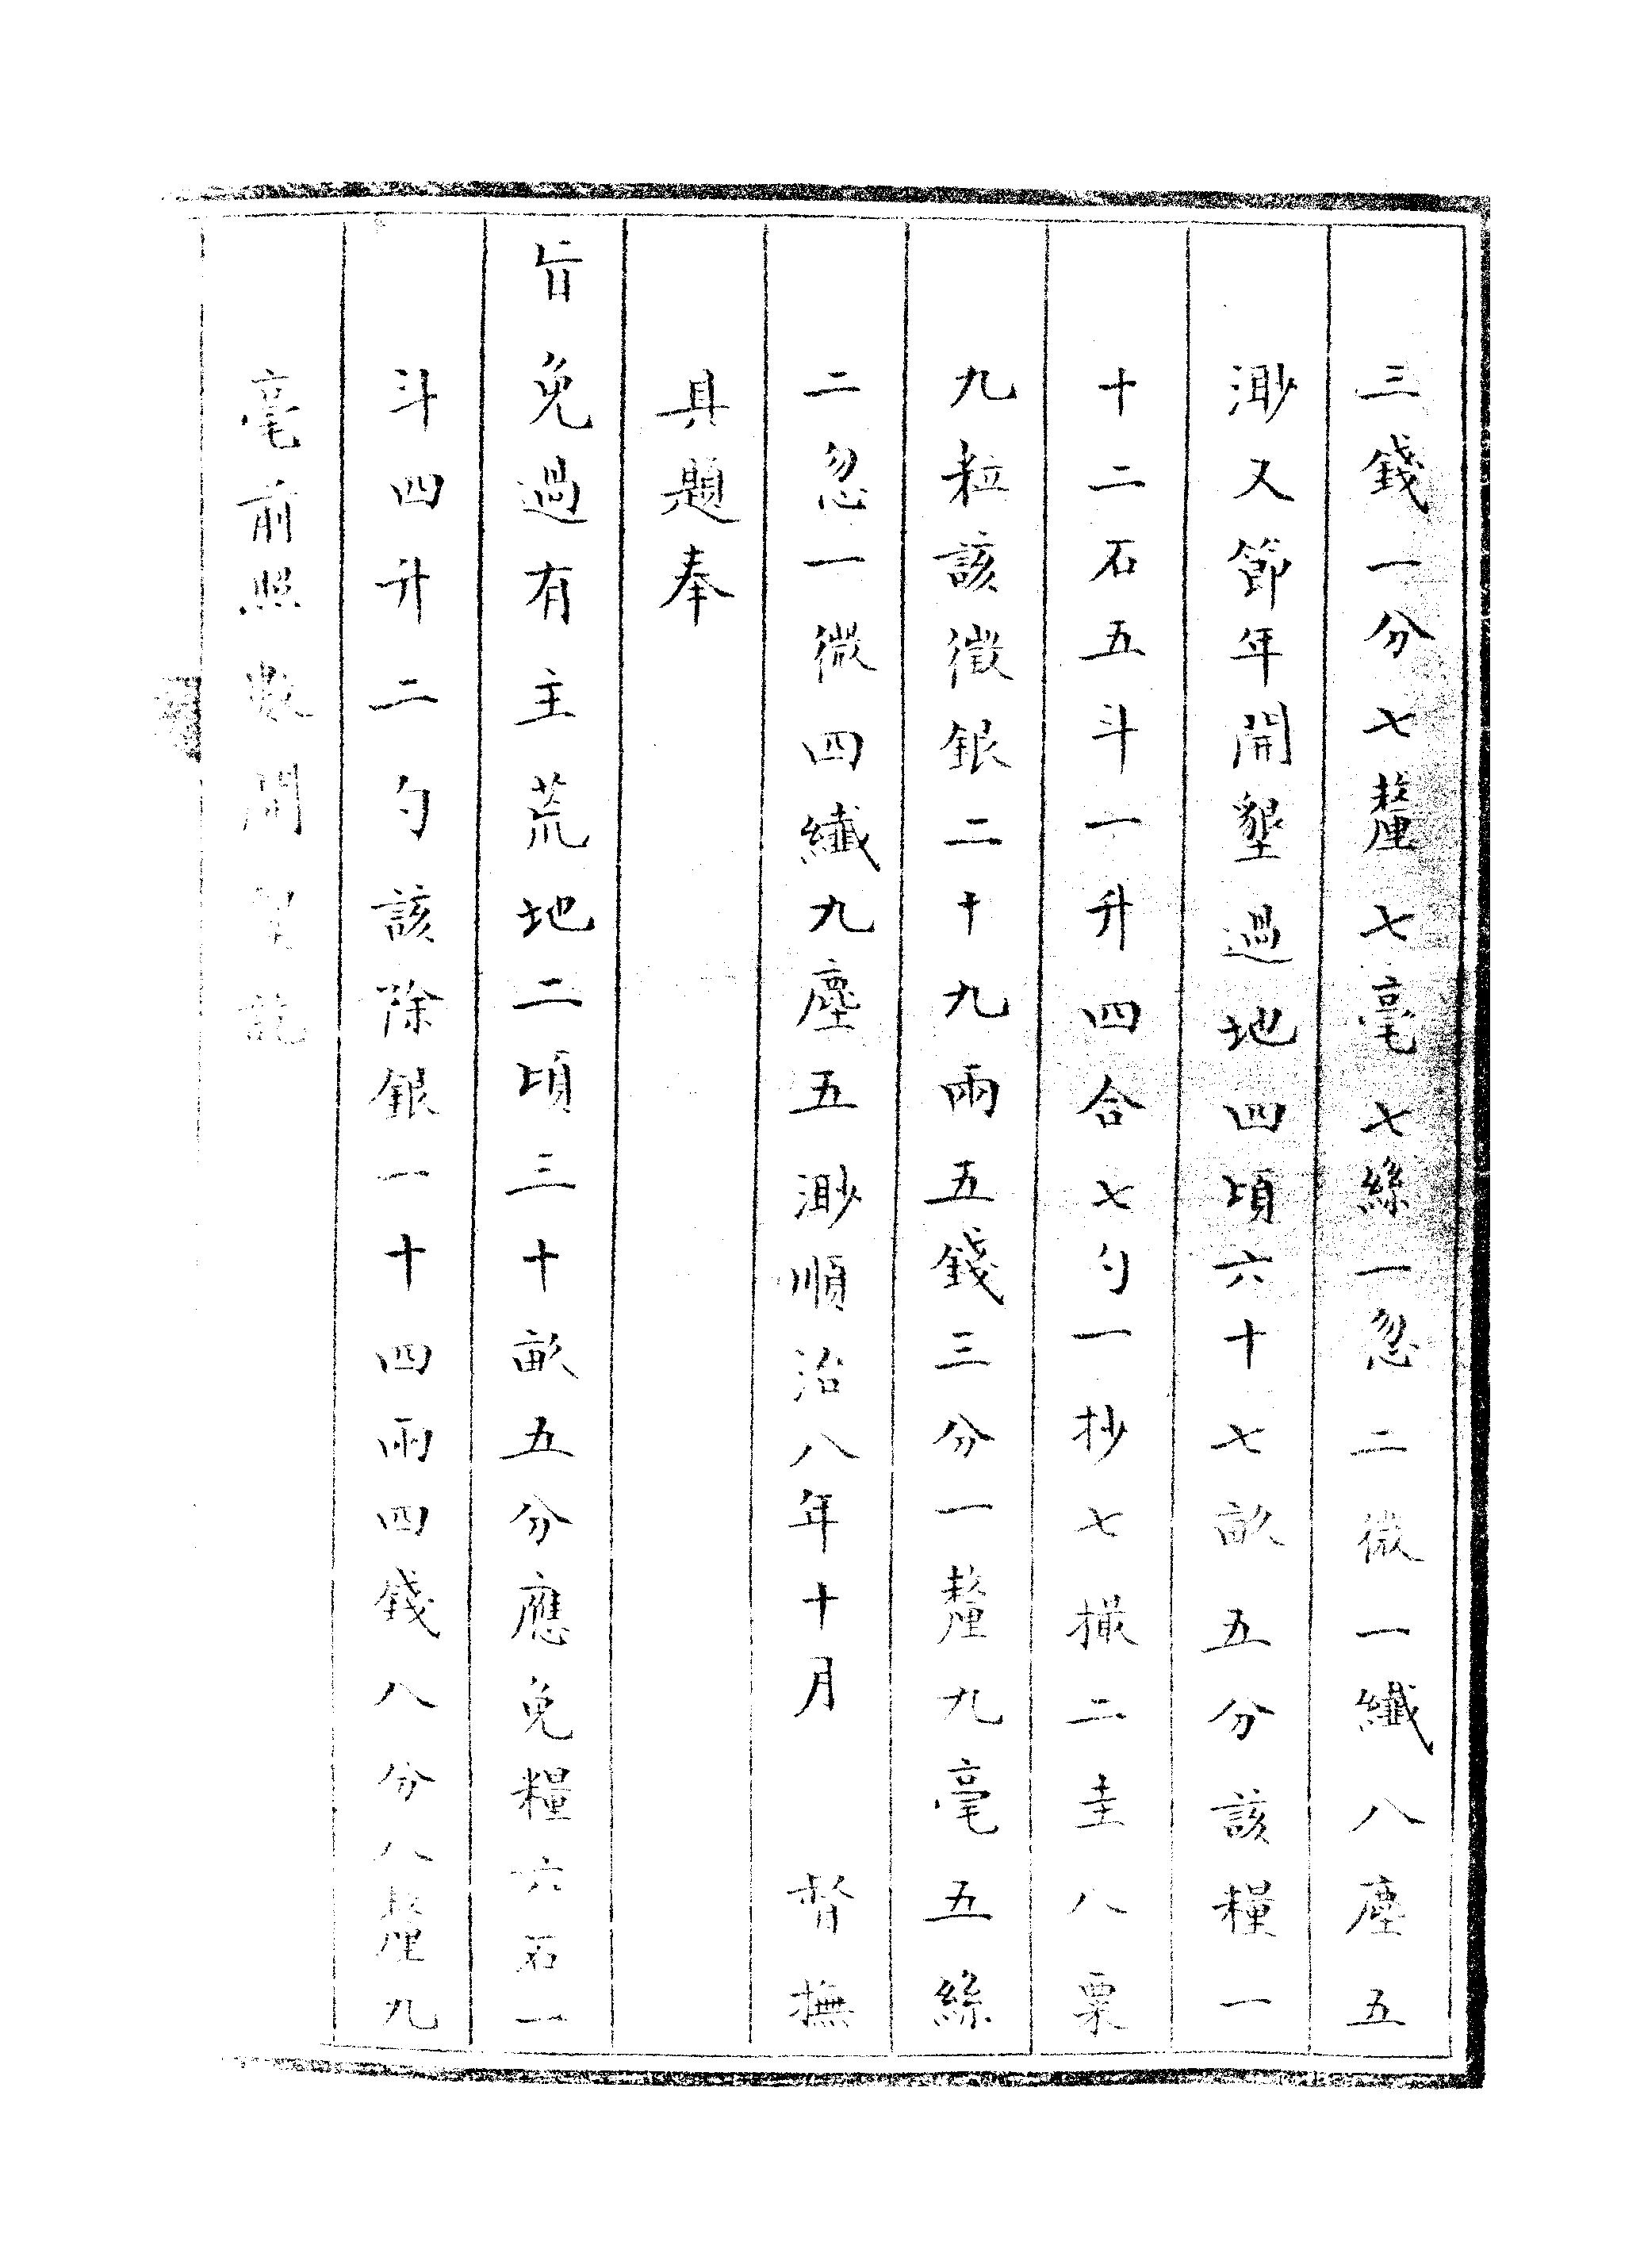 三錢一分七釐七毫七絲一忽二微一纖八塵五
渺又節年開墾過地四頃六十七畝五分該糧一
十二石五斗一升四合七勺一抄七撮二圭八粟
九粒該徵銀二十九兩五錢三分一釐九毫五絲
二忽一微四纖九塵五渺順治八年十月 督撫
具題奉
旨免過有主荒地二頃三十畝五分應免糧六石一
斗四升二勺該除銀一十四兩四錢八分八釐九
毫前照數開墾訖